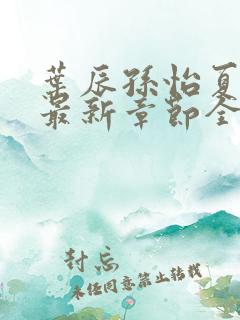 葉辰孫怡夏
最新章節全
封忘
未经同意禁止转载